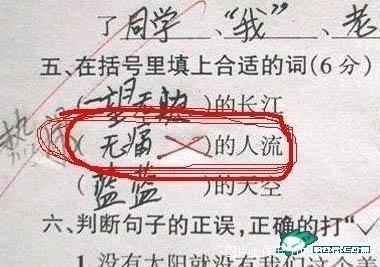 了同学、“我”、老
五、在括号里填上合适的词(6分)
(一望无际)的长江
热闹(无痛)的人流
(蓝蓝)的天空
六、判断句子的正误,正确的打“✓
1.没有太阳就没有我们这个美